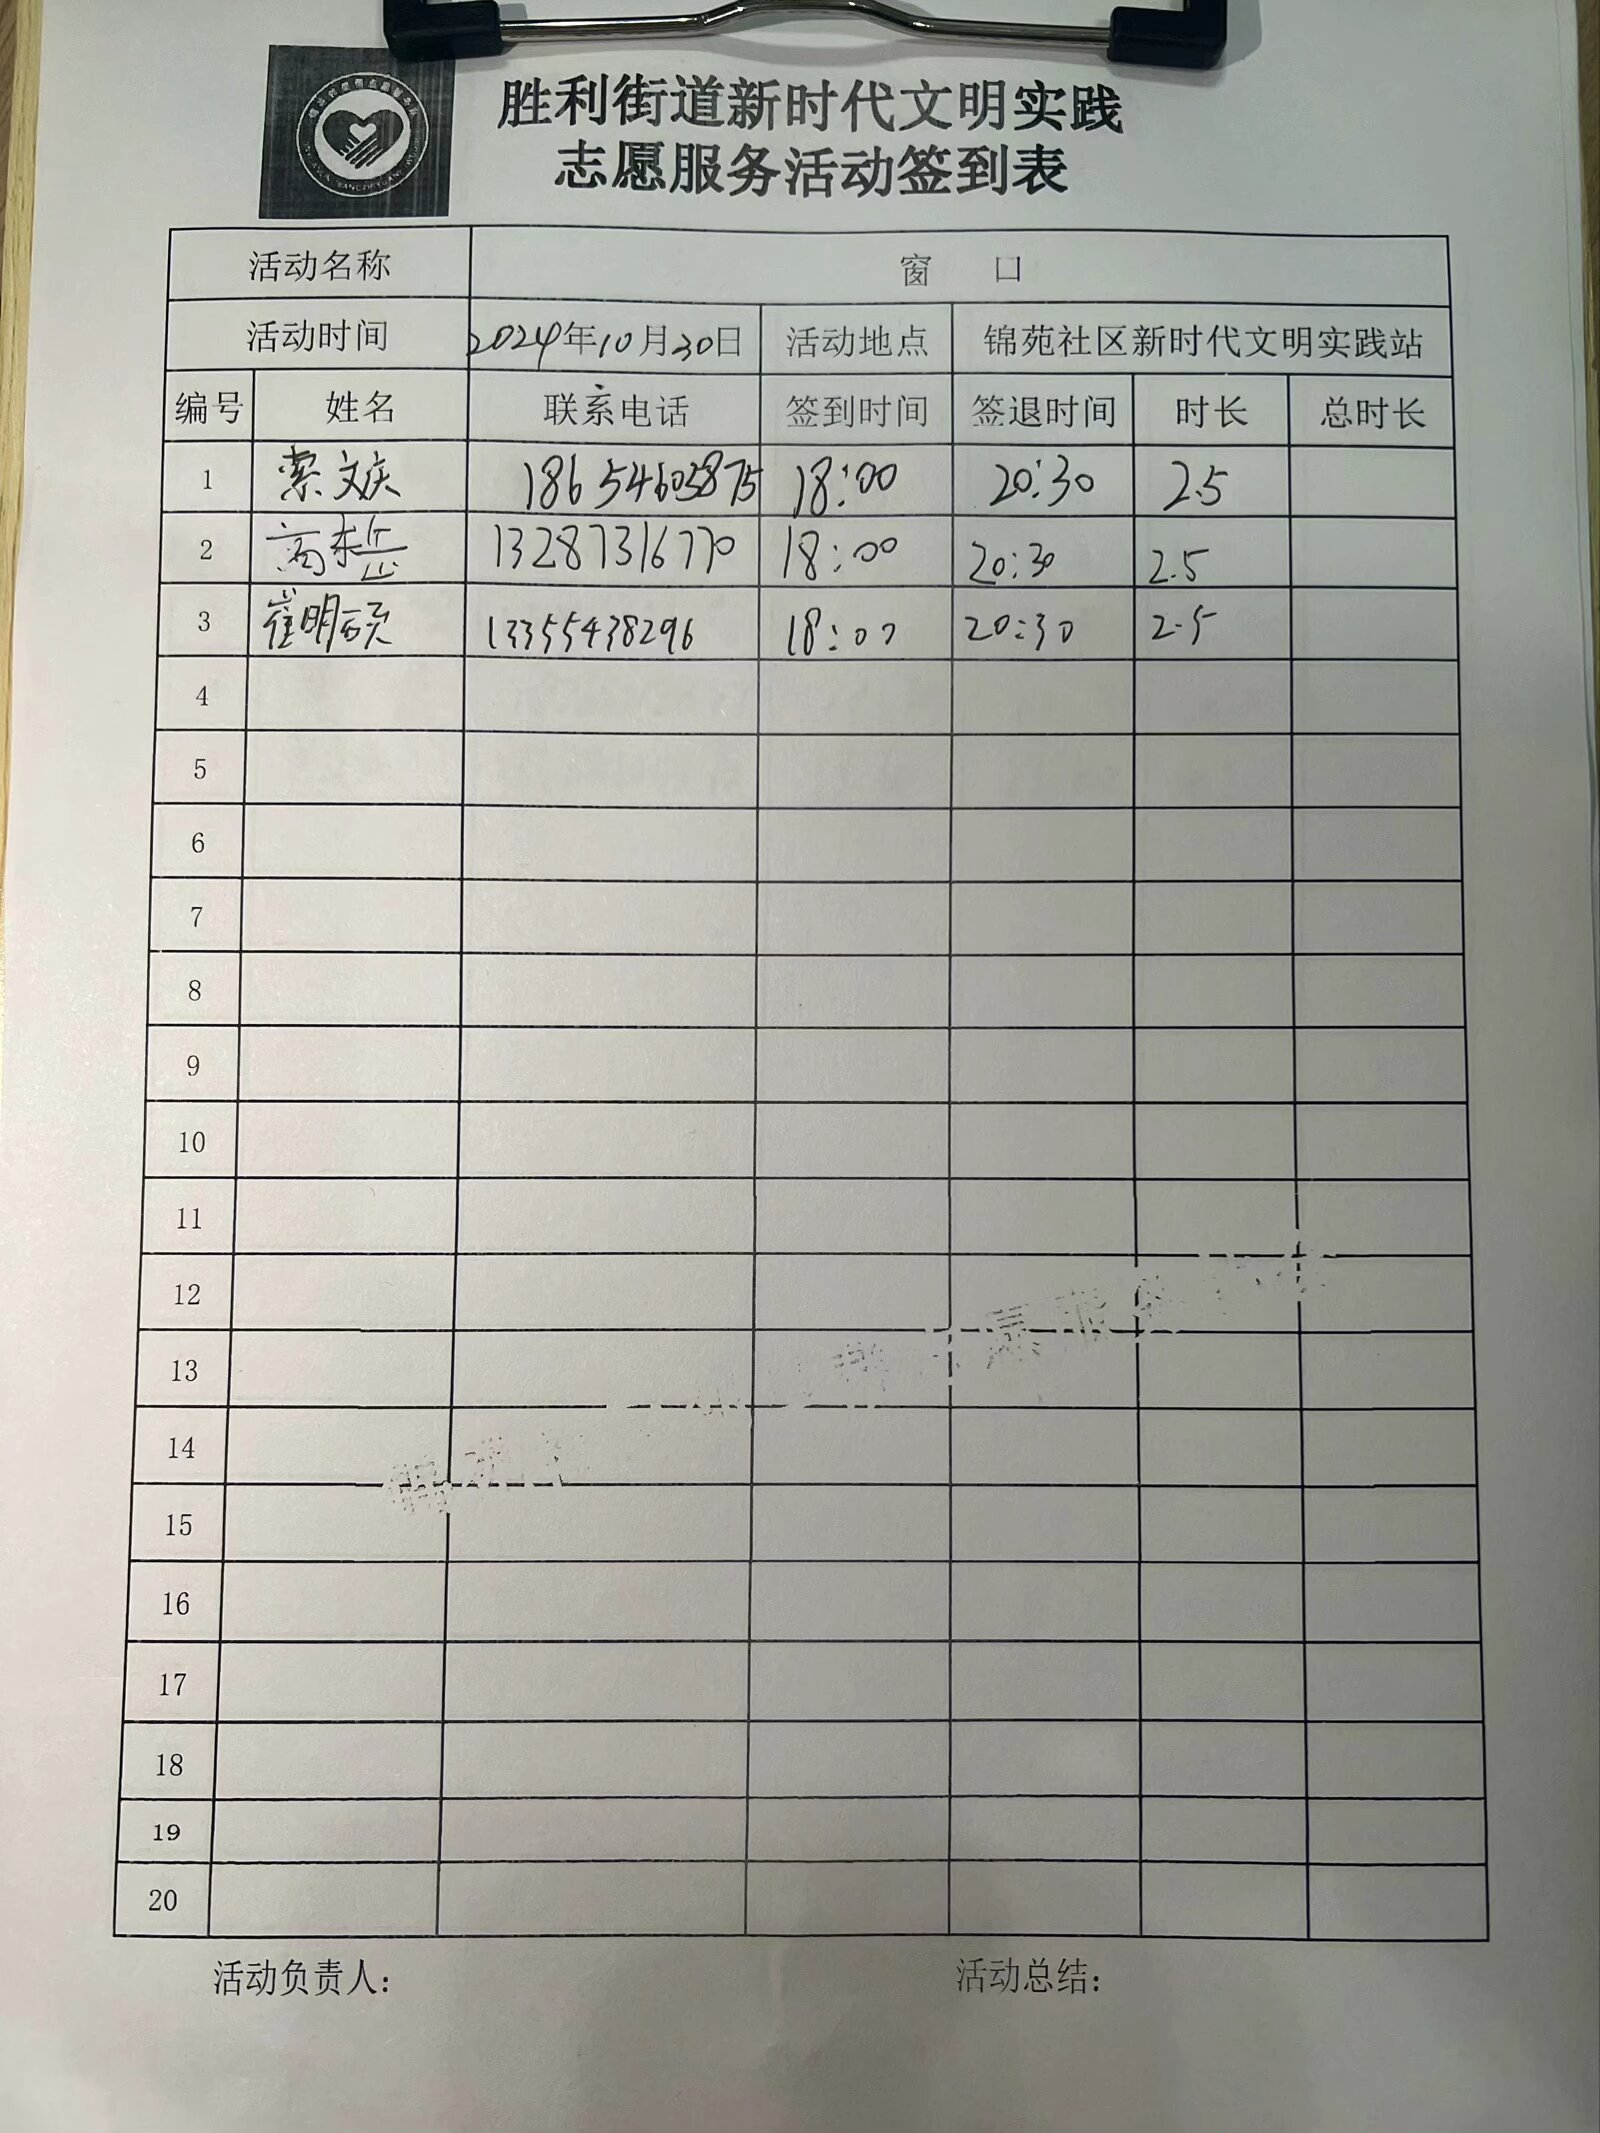 胜利街道新时代文明实践
志愿服务活动签到表
活动名称 窗 口
活动时间 2024年10月30日 活动地点 锦苑社区新时代文明实践站
编号 姓名 联系电话 签到时间 签退时间 时长 总时长
1 索文庆 18654605875 18:00 20:30 2.5
2 高 13287316770 18:00 20:30 2.5
3 崔明硕 13355438296 18:00 20:30 2.5
4
5
6
7
8
9
10
11
12
13
14
15
16
17
18
19
20
活动负责人: 活动总结: